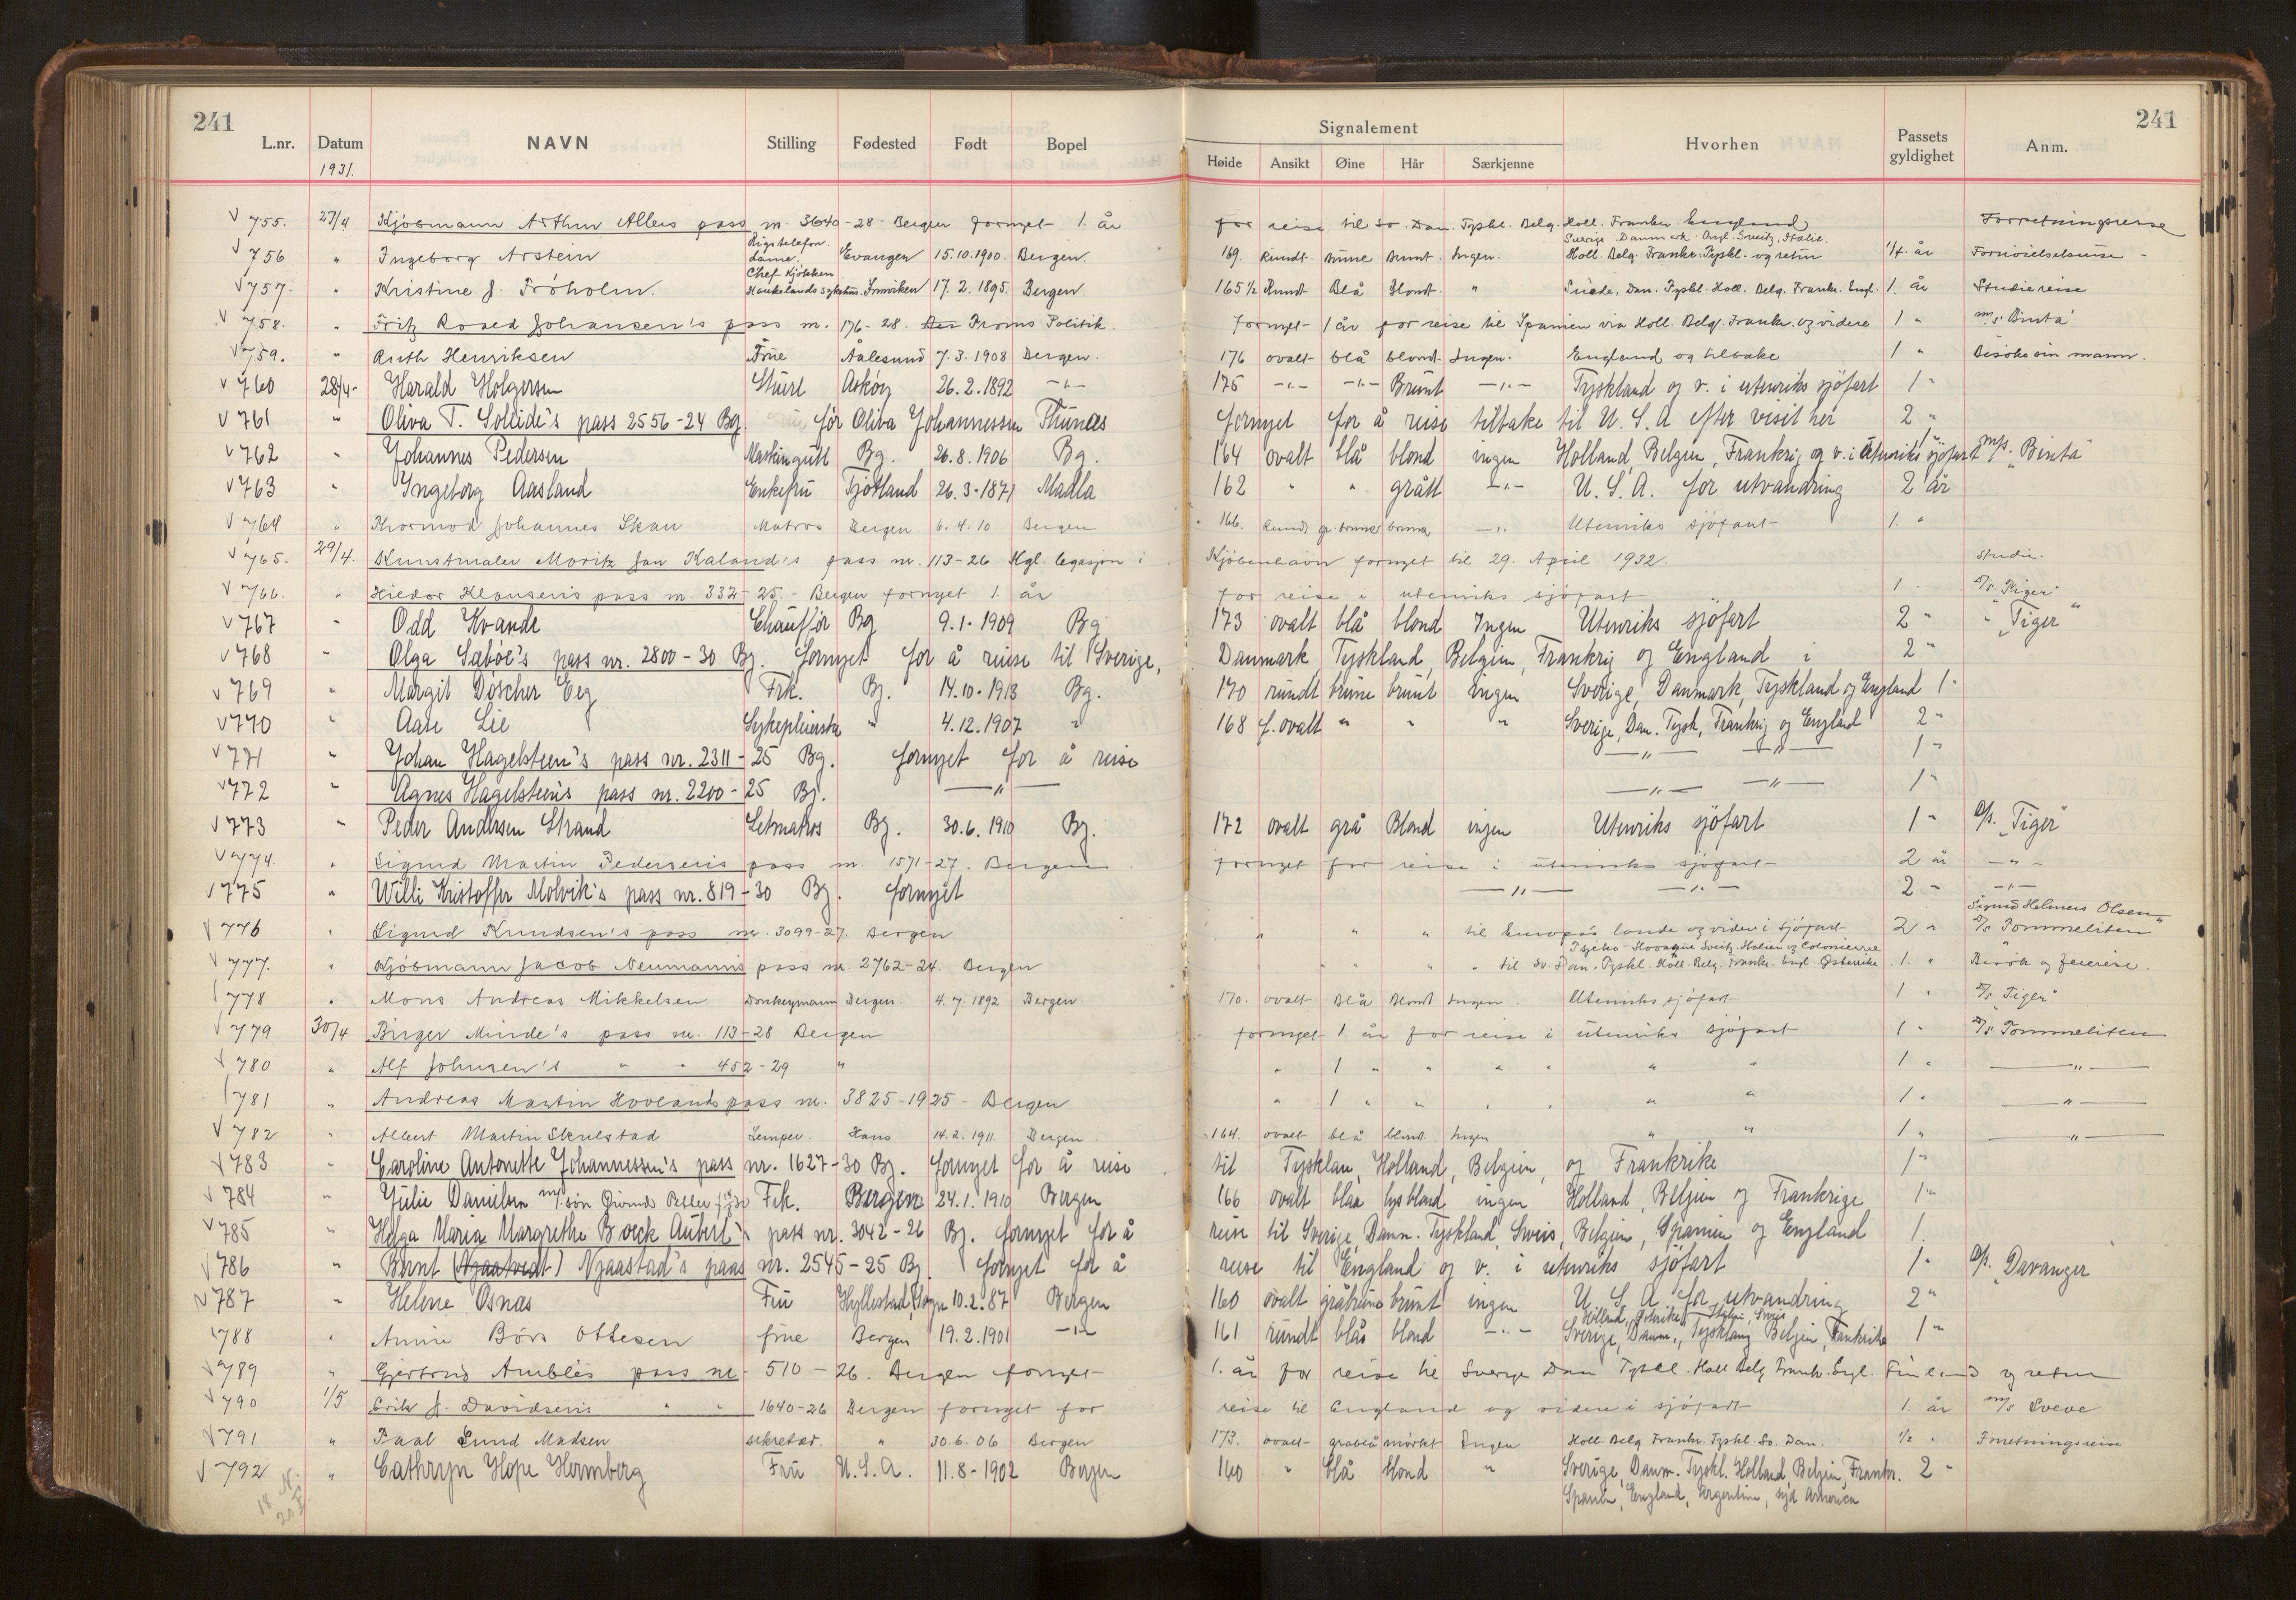 241 241
L.nr. Datum NAVN Stilling Fødested Født Bopel Signalement Hvorhen Passets gyldighet Anm.
Høide Ansikt Øine Hår Særkjenne
1931.
755. 27/4 Kjöbmann Arthur Allers pass nr. 3640-28- Bergen fornyet 1. år for reise til Sv. Dan. Tyskl. Belg. Holl. Frankr. England Forretningsreise
Sverige Danmark Engl. Sveitz, Italie.
756 " Ingeborg Arstein Rigstelefon. dame. Evangen 15.10.1900. Bergen. 169. Rundt. brune brunt. Ingen. Holl. Belg. Frankr. Tyskl. og retur 1/4. år
757. " Kristine J. Fröholm. Chef Kjökken Haukelands sykehus. 17.2.1895. Bergen 165 1/2 Rundt Blå Blond. " Dan. Tyskl. Holl. Belg. Frankr. Engl. 1. år Studiereise
758. " Fritz Roald Johansen's pass nr. 176-28. Troms Politik. fornyet 1 år for reise til Spanien via Holl. Belg. Frankr. og videre 1 " m/s Binta
759. " Ruth Henriksen Frue Ålesund 7.3.1908 Bergen. 176 ovalt blå blond. Ingen. England og tilbake 1 " Besöke sin mann.
760 28/4- Harald Holgersen Stuert Asköy 26.2.1892 -"- 175 -"- -"- Brunt -"- Tyskland og v. i utenriks sjöfart 1 "
761 " Oliva T. Sollide's pass 2556-24 Bg. för Oliva Johannessen Thunes fornyet for å reise tilbake til U.S.A efter visit her 2 "
762 " Johannes Pedersen Maskingutt Bg. 26.8.1906 Bg. 164 ovalt blå blond ingen Holland, Belgien, Frankrig og v. i utenriks sjöfart 1 " m/s. "Binta"
763 " Ingeborg Aasland Enkefru Tjötland 26.3-1871 Madla 162 " " grått -"- U.S.A. for utvandring 2 år
764 " Thormod Johannes Skau Matros Bergen 6.4.10 Bergen 166. Rund gr. brune brune -"- Utenriks sjöfart 1. "
765. 29/4. Kunstmaler Moritz Jan Kaland's pass nr. 113-26 Kgl. legasjon i Kjöbenhavn fornyet til 29. April 1932. Studie.
766. " Hiedor Klausens pass nr. 332-25.- Bergen fornyet 1. år for reise i utenriks sjöfart 1. D/s "Tiger"
767 " Odd Kvande Chaufför Bg 9.1.1909 Bg 173 ovalt blå blond Ingen Utenriks sjöfart 2 " " "Tiger"
768 " Olga Sæböe's pass nr. 2800-30 Bg. fornyet for å reise til Sverige, Danmark, Tyskland, Belgien, Frankrig og England i 2 "
769 " Margit Döscher Eeg Frk. Bg. 14.10.1913 Bg. 170 rundt brune brunt ingen Sverige, Danmark, Tyskland og England 1 "
770 " Aase Lie Sykepleierske " 4.12.1907 " 168 f. ovalt " " " Sverige, Dan. Tysk, Frankrig og England 2 "
771 " Johan Hagelsteen's pass nr. 2311-25 Bg. fornyet for å reise -"- -"- 1 "
772 " Agnes Hagelsteen's pass nr. 2200-25 Bg. -"- -"- -"- 1 "
773 " Peder Andersen Strand Letmatros Bg. 30.6.1910 Bg. 172 ovalt grå Blond ingen Utenriks sjöfart 1 " D/s. "Tiger"
774. " Sigurd Martin Pedersens pass nr. 1571-27. Bergen fornyet for reise i utenriks sjöfart 2 år -"-
775 " Willi Kristoffer Molvik's pass nr. 819-30 Bg. fornyet -"- -"- 2 " -"-
Sigurd Helmers Olsen
776 " Sigurd Knudsen's pass nr. 3099-27. Bergen " " " til Europas lande og videre i sjöfart 2 " D/s Tommeliten"
777. " Kjöbmann Jacob Neumanns pass nr. 2762-24. Bergen " " " " til Sv. Dan. Tyskl. Holl. Belg. Frankr. Engl. Österrike 1. "
778 " Mons Andreas Mikkelsen Donkeymann Bergen. 4.7.1892 Bergen 170. ovalt Blå blond Ingen. Utenriks sjöfart 1 " D/s "Tiger"
779 30/4 Birger Minde's pass nr. 113-28 Bergen fornyet 1. år for reise i utenriks sjöfart 1 " D/s "Tommeliten
780 " Alf Johnsen's " " 452-29 " " 1 " " " " " " 1 " -"-
781 " Andreas Martin Hovlands pass nr. 3825-1925- Bergen " 1 " " " " " " 1 " -"-
782 " Albert Martin Skulstad Lemper. Haus 14.2.1911. Bergen 164. ovalt blå blond Ingen " " 1 " -"-
783 " Caroline Antonette Johannessen's pass nr. 1627-30 Bg. fornyet for å reise til Tysklan, Holland, Belgien, og Frankrike 1 "
784 " Julie Danielsen Frk. Bergen 24.1.1910 Bergen 166 ovalt blaa lysblond ingen Holland, Belgien og Frankrige 1 "
785 " Helga Maria Margrethe Boeck Aubert's pass nr. 3042-26 Bg. fornyet for å reise til Sverige, Danm. Tyskland, Sveis, Belgien, Spanien og England 1.
786 " Bernt (Njaatvedt) Njaastad's pass nr. 2545-25 Bg. fornyet for å reise til England og v. i utenriks sjöfart 1 " D/s. "Davanger"
787 " Helene Osnæs Fru Hyllestad, Sogn 10.2.87 Bergen 160 ovalt gråbrune brunt ingen U.S.A. for utvandring 2 "
788 " Annie Börs Ottesen frue Bergen 19.2.1901 -"- 161 rundt blås blond -"- Sverige, Danm., Tyskland Belgien, Frankrike 1 "
789 " Gjertrud Amble's pass nr. 510-26. Bergen fornyet 1. år for reise til Sverige Dan Tyskl. Holl Belg Frankr. Engl. Finland og retur
790 1/5 Erik J. Davidsens " " 1640-26 Bergen fornyet for reise til England og videre i sjöfart 1. år m/s Sveve
791 " Paal Lund Madsen sekretær. " 30.6.06 Bergen 173. ovalt gråblå mörkt Ingen Holl. Belg Frankr. Tyskl. Sv. Dan. 1/2 " Forretningsreise
792 " Cathryn Hope Hermberg Fru U.S.A. 11.8-1902 Bergen 160 " blå blond " Sverige, Danm. Tyskl. Holland, Belgien, Frankr. 2 "
Spanien, England, Argentina, syd America